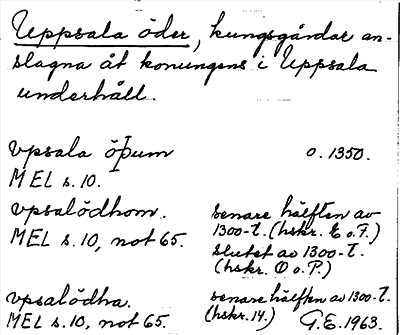 Uppsala öder, kungsgårdar an-
slagna åt konungens i Uppsala
underhåll.
vpsala öþum o. 1350.
MEL s. 10.
vpsalödhom. senare hälften av
MEL s. 10, not 65. 1300-t. (hskr. E o. F.)
slutet av 1300-t.
(hskr. O o. P.)
vpsalödha. senare hälften av 1300-t.
MEL s. 10, not 65. (hskr. 14.) G.E. 1963.